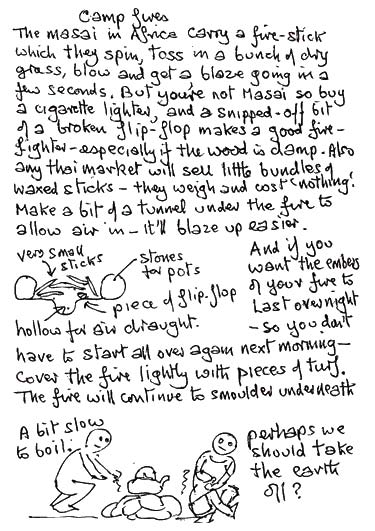 Camp fires
The masai in Africa carry a fire-stick
which they spin, toss in a bunch of dry
grass, blow and get a blaze going in a
few seconds. But you're not Masai so buy
a cigarette lighter, and a snipped-off bit
of a broken flip-flop makes a good fire-
lighter - especially if the wood is damp. Also
any thai market will sell little bundles of
waxed sticks - they weigh and cost nothing!
Make a bit of a tunnel under the fire to
allow air in - it'll blaze up easier.
very small
sticks
stones
for pots
piece of flip-flop
hollow for air draught.
And if you
want the embers
of your fire to
last overnight
- so you don't
have to start all over again next morning -
cover the fire lightly with pieces of turf.
The fire will continue to smoulder underneath
A bit slow
to boil.
perhaps we
should take
the earth
off?